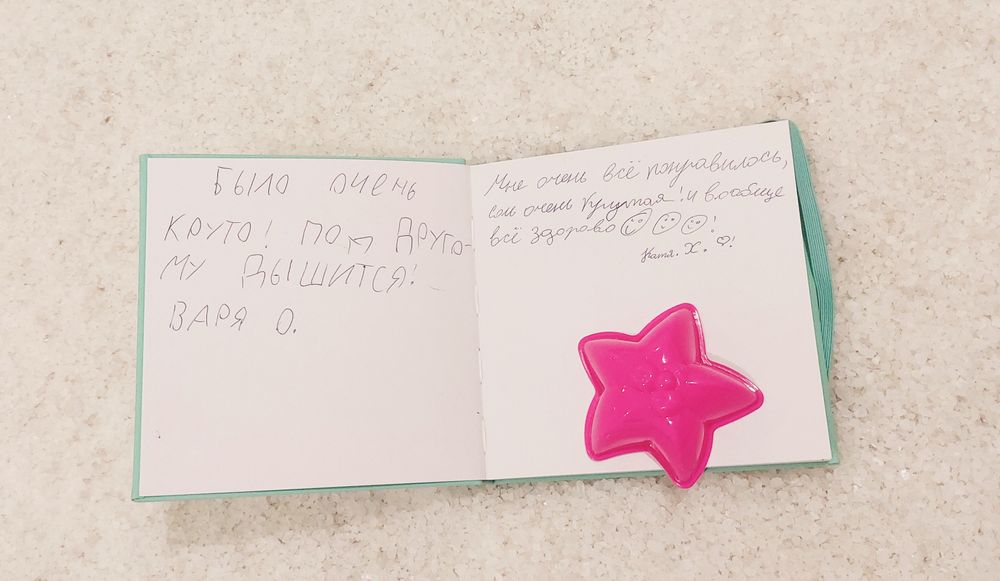 БЫЛО ОЧЕНЬ
КРУТО! ПО ДРУГО-
МУ ДЫШИТСЯ!
ВАРЯ О.
Мне очень всё понравилось,
соль очень крупная! и вообще
всё здорово !
Катя. Х. ♡!